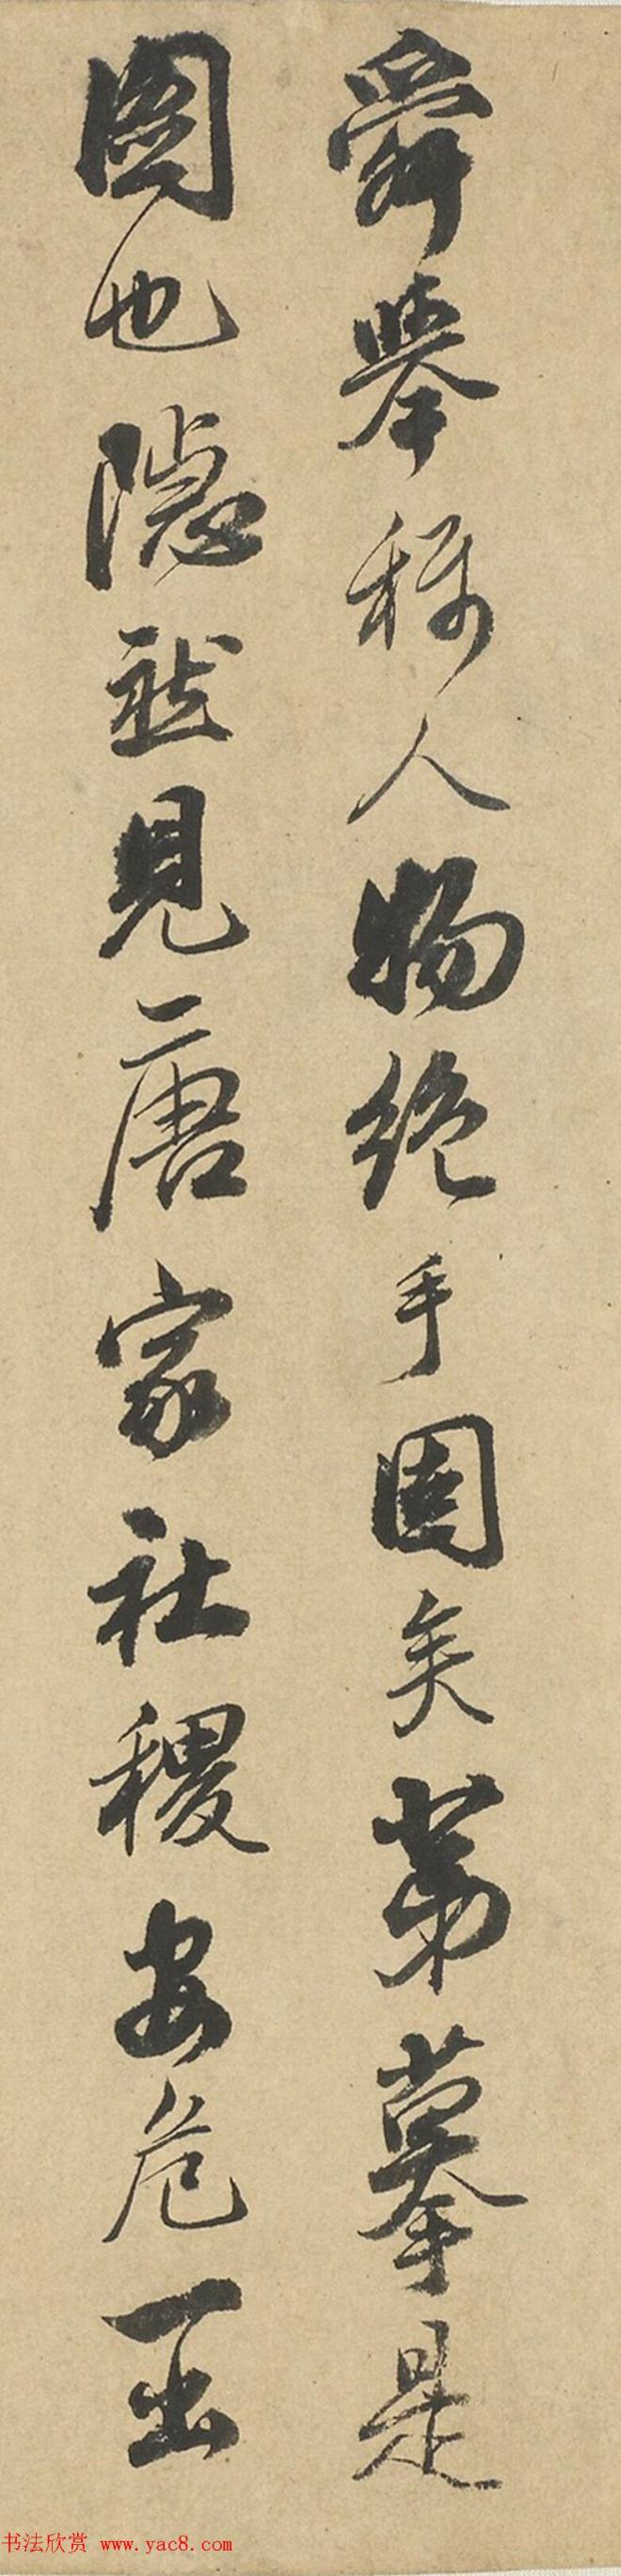 舜舉稱人物絕手固矣第摹是
圖也隱然見唐家社稷安危一出
书法欣赏 www.yac8.com